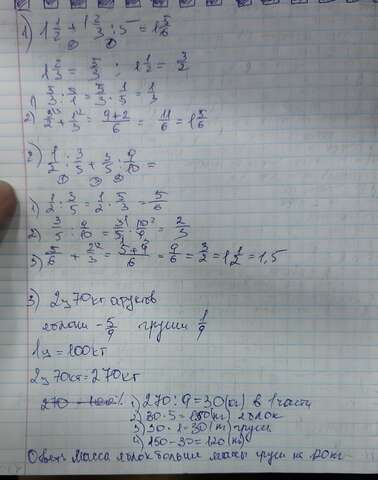 1) 1 1/2 + 1 2/3 : 5 = 1 5/6
1 2/3 = 5/3 ; 1 1/2 = 3/2
1) 5/3 : 5/1 = 5/3 · 1/5 = 1/3
2) 3/2 + 1/3 = 9+2/6 = 11/6 = 1 5/6
2) 1/2 : 3/5 + 3/5 : 9/10 =
1) 1/2 : 3/5 = 1/2 · 5/3 = 5/6
2) 3/5 : 9/10 = 3/5 · 10/9 = 2/3
3) 5/6 + 2/3 = 5+4/6 = 9/6 = 3/2 = 1 1/2 = 1,5
3) 2ц 70кг фруктов
яблоки - 5/9 груши 1/9
1ц = 100кг
2ц 70кг = 270кг
1) 270 : 9 = 30 (кг) в 1 части
2) 30 · 5 = 150 (кг) яблок
3) 30 · 1 = 30 (кг) груш
4) 150 - 30 = 120 (кг)
Ответ: Масса яблок больше массы груш на 120кг.